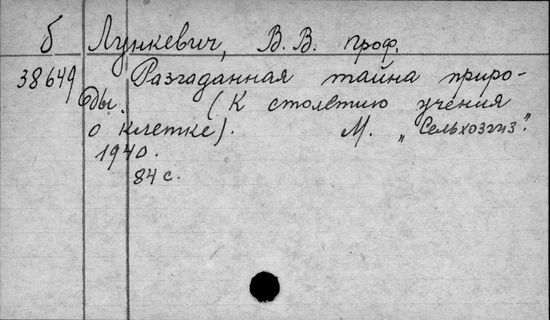 б Лункевич, В. В. проф.
38649 Разгаданная тайна приро-
ды. (К столетию учения
о клетке). М. „Сельхозгиз".
1940.
84 с.